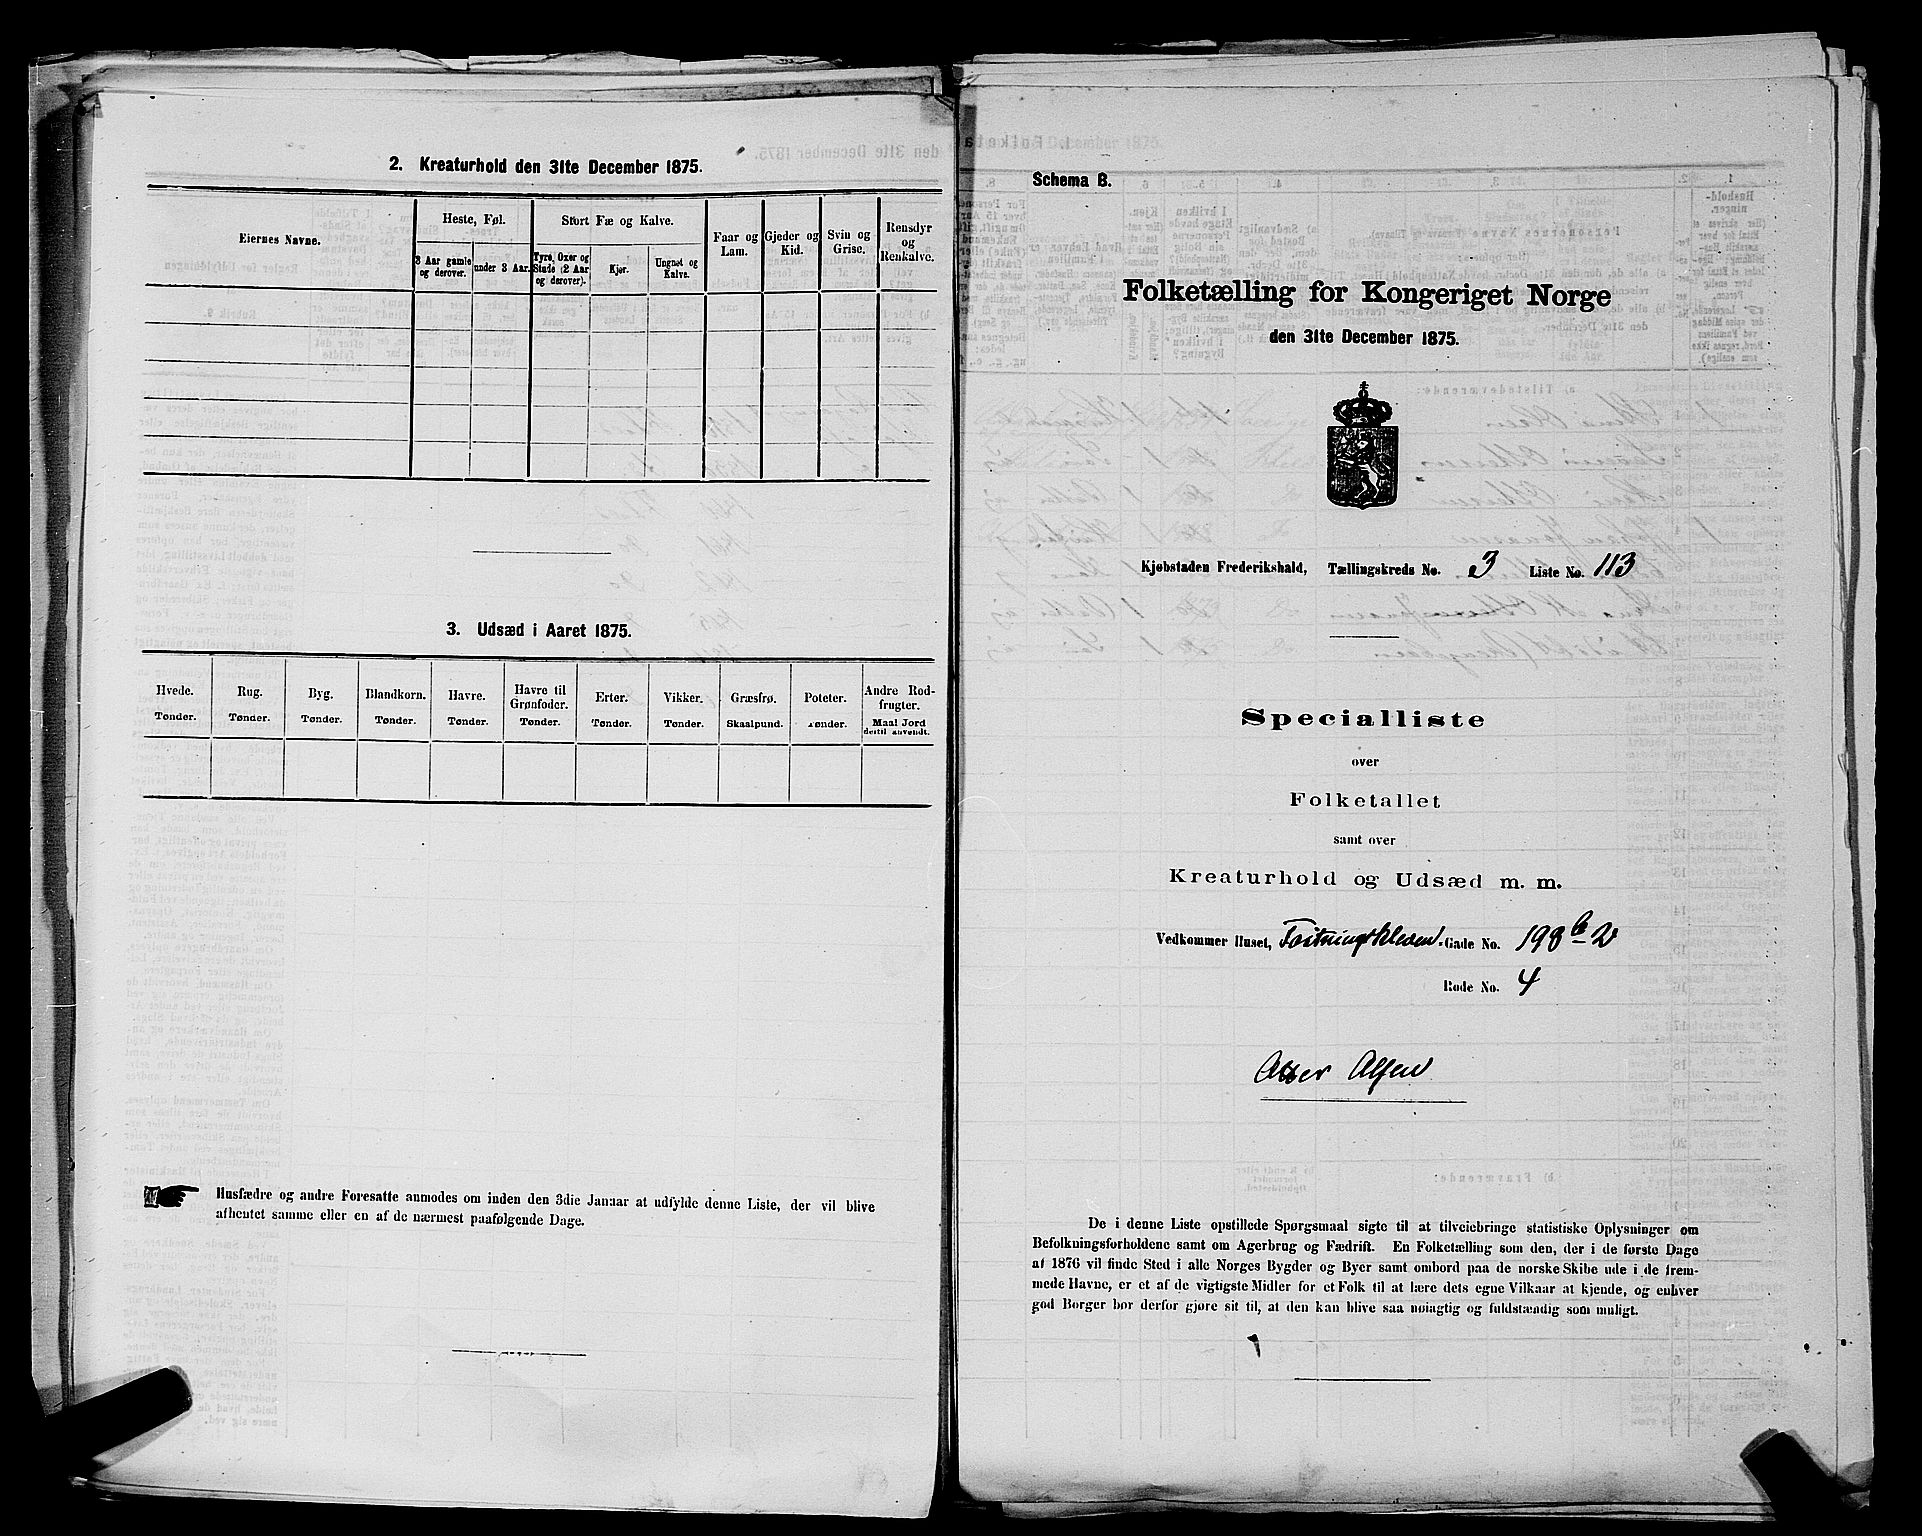 2. Kreaturhold den 31te December 1875.
Eiernes Navne.
Heste, Føl.
Stort Fæ og Kalve.
Faar og Lam.
Gjeder og Kid.
Svin og Grise.
Rensdyr og Renkalve.
3 Aar gamle og derover.
under 3 Aar.
Tyre, Oxer og Stude (2 Aar og derover).
Kjør.
Ungnøt og Kalve.
3. Udsæd i Aaret 1875.
Hvede. Rug. Byg. Blandkorn. Havre. Havre til Grønfoder. Erter. Vikker. Græsfrø. Poteter. Andre Rodfrugter.
Tønder. Tønder. Tønder. Tønder. Tønder. Tønder. Tønder. Tønder. Skaalpund. Tønder. Maal Jord dertil anvendt.
Husfædre og andre Foresatte anmodes om inden den 3die Januar at udfylde denne Liste, der vil blive
afhentet samme eller en af de nærmest paafølgende Dage.
Schema B.
Folketælling for Kongeriget Norge
den 31te December 1875.
Kjøbstaden Frederikshald, Tællingskreds No. 3 Liste No. 113
Specialliste
over
Folketallet
samt over
Kreaturhold og Udsæd m. m.
Vedkommer Huset, Gade No. 198 b 2
Rode No. 4
Olsen
De i denne Liste opstillede Spørgsmaal sigte til at tilveiebringe statistiske Oplysninger om
Befolkningsforholdene samt om Agerbrug og Fædrift. En Folketælling som den, der i de første Dage
af 1876 vil finde Sted i alle Norges Bygder og Byer samt ombord paa de norske Skibe ude i de frem-
mede Havne, er et af de vigtigste Midler for et Folk til at lære dets egne Vilkaar at kjende, og enhver
god Borger bør derfor gjøre sit til, at den kan blive saa nøiagtig og fuldstændig som muligt.